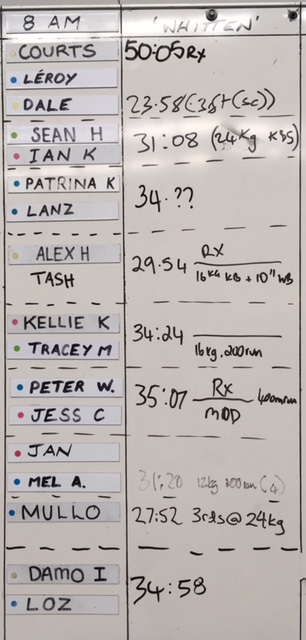 8 AM 'WHITTEN'
COURTS 50:05 Rx
LÉROY
DALE 23.58
SEAN H 31:08 (24kg KBS)
IAN K
PATRINA K 34.??
LANZ
ALEX H 29.54 RX
TASH 16kg KB + 10" WB
KELLIE K 34:24
TRACEY M 16kg, 200 run
PETER W. 35:07 Rx 400m run
JESS C MOD
JAN
MEL A. 31:20 12kg 200 run (4)
MULLO 27:52 3rds@24kg
DAMO I 34:58
LOZ